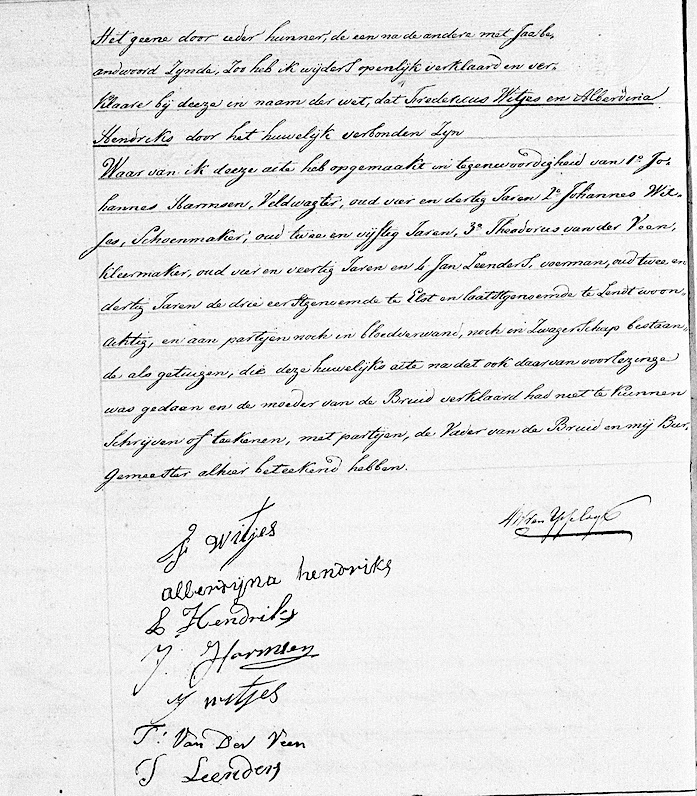 Het geene door ieder hunner, de een na de andere met Jaa be,
andwoord Zynde, Zoo heb ik wijders openlijk verklaard en ver-
klaare bij deeze in naam der wet, dat Fredericus Witjes en Alberdina
Hendriks door het huwelijk verbonden Zyn
Waar van ik deeze acte heb opgemaakt in tegenwoordigheid van 1º Jo-
hannes Harmsen, Veldwagter, oud vier en dertig Jaren 2º Johannes Wit-
jes, Schoenmaker, oud twee en vijftig Jaren, 3º Theodorus van der Veen,
kleermaker, oud vier en veertig Jaren en 4 Jan Leenders, voerman, oud twee en
dertig Jaren de drie eerstgenoemde te Elst en laatstgenoemde te Lendt woon-
achtig, en aan partijen noch in bloedverwand, noch in Zwagerschap bestaan-
de als getuigen, die deze huwelijks acte na dat ook daarvan voorlezinge
was gedaan en de moeder van de Bruid verklaard had niet te kunnen
Schrijven of teekenen, met partijen, de Vader van de Bruid en mij Bur,
gemeester alhier beteekend hebben.
F Witjes
alberdyna hendriks
Hendriks
J. Harmsen
J witjes
T. Van Der Veen
J Leenders